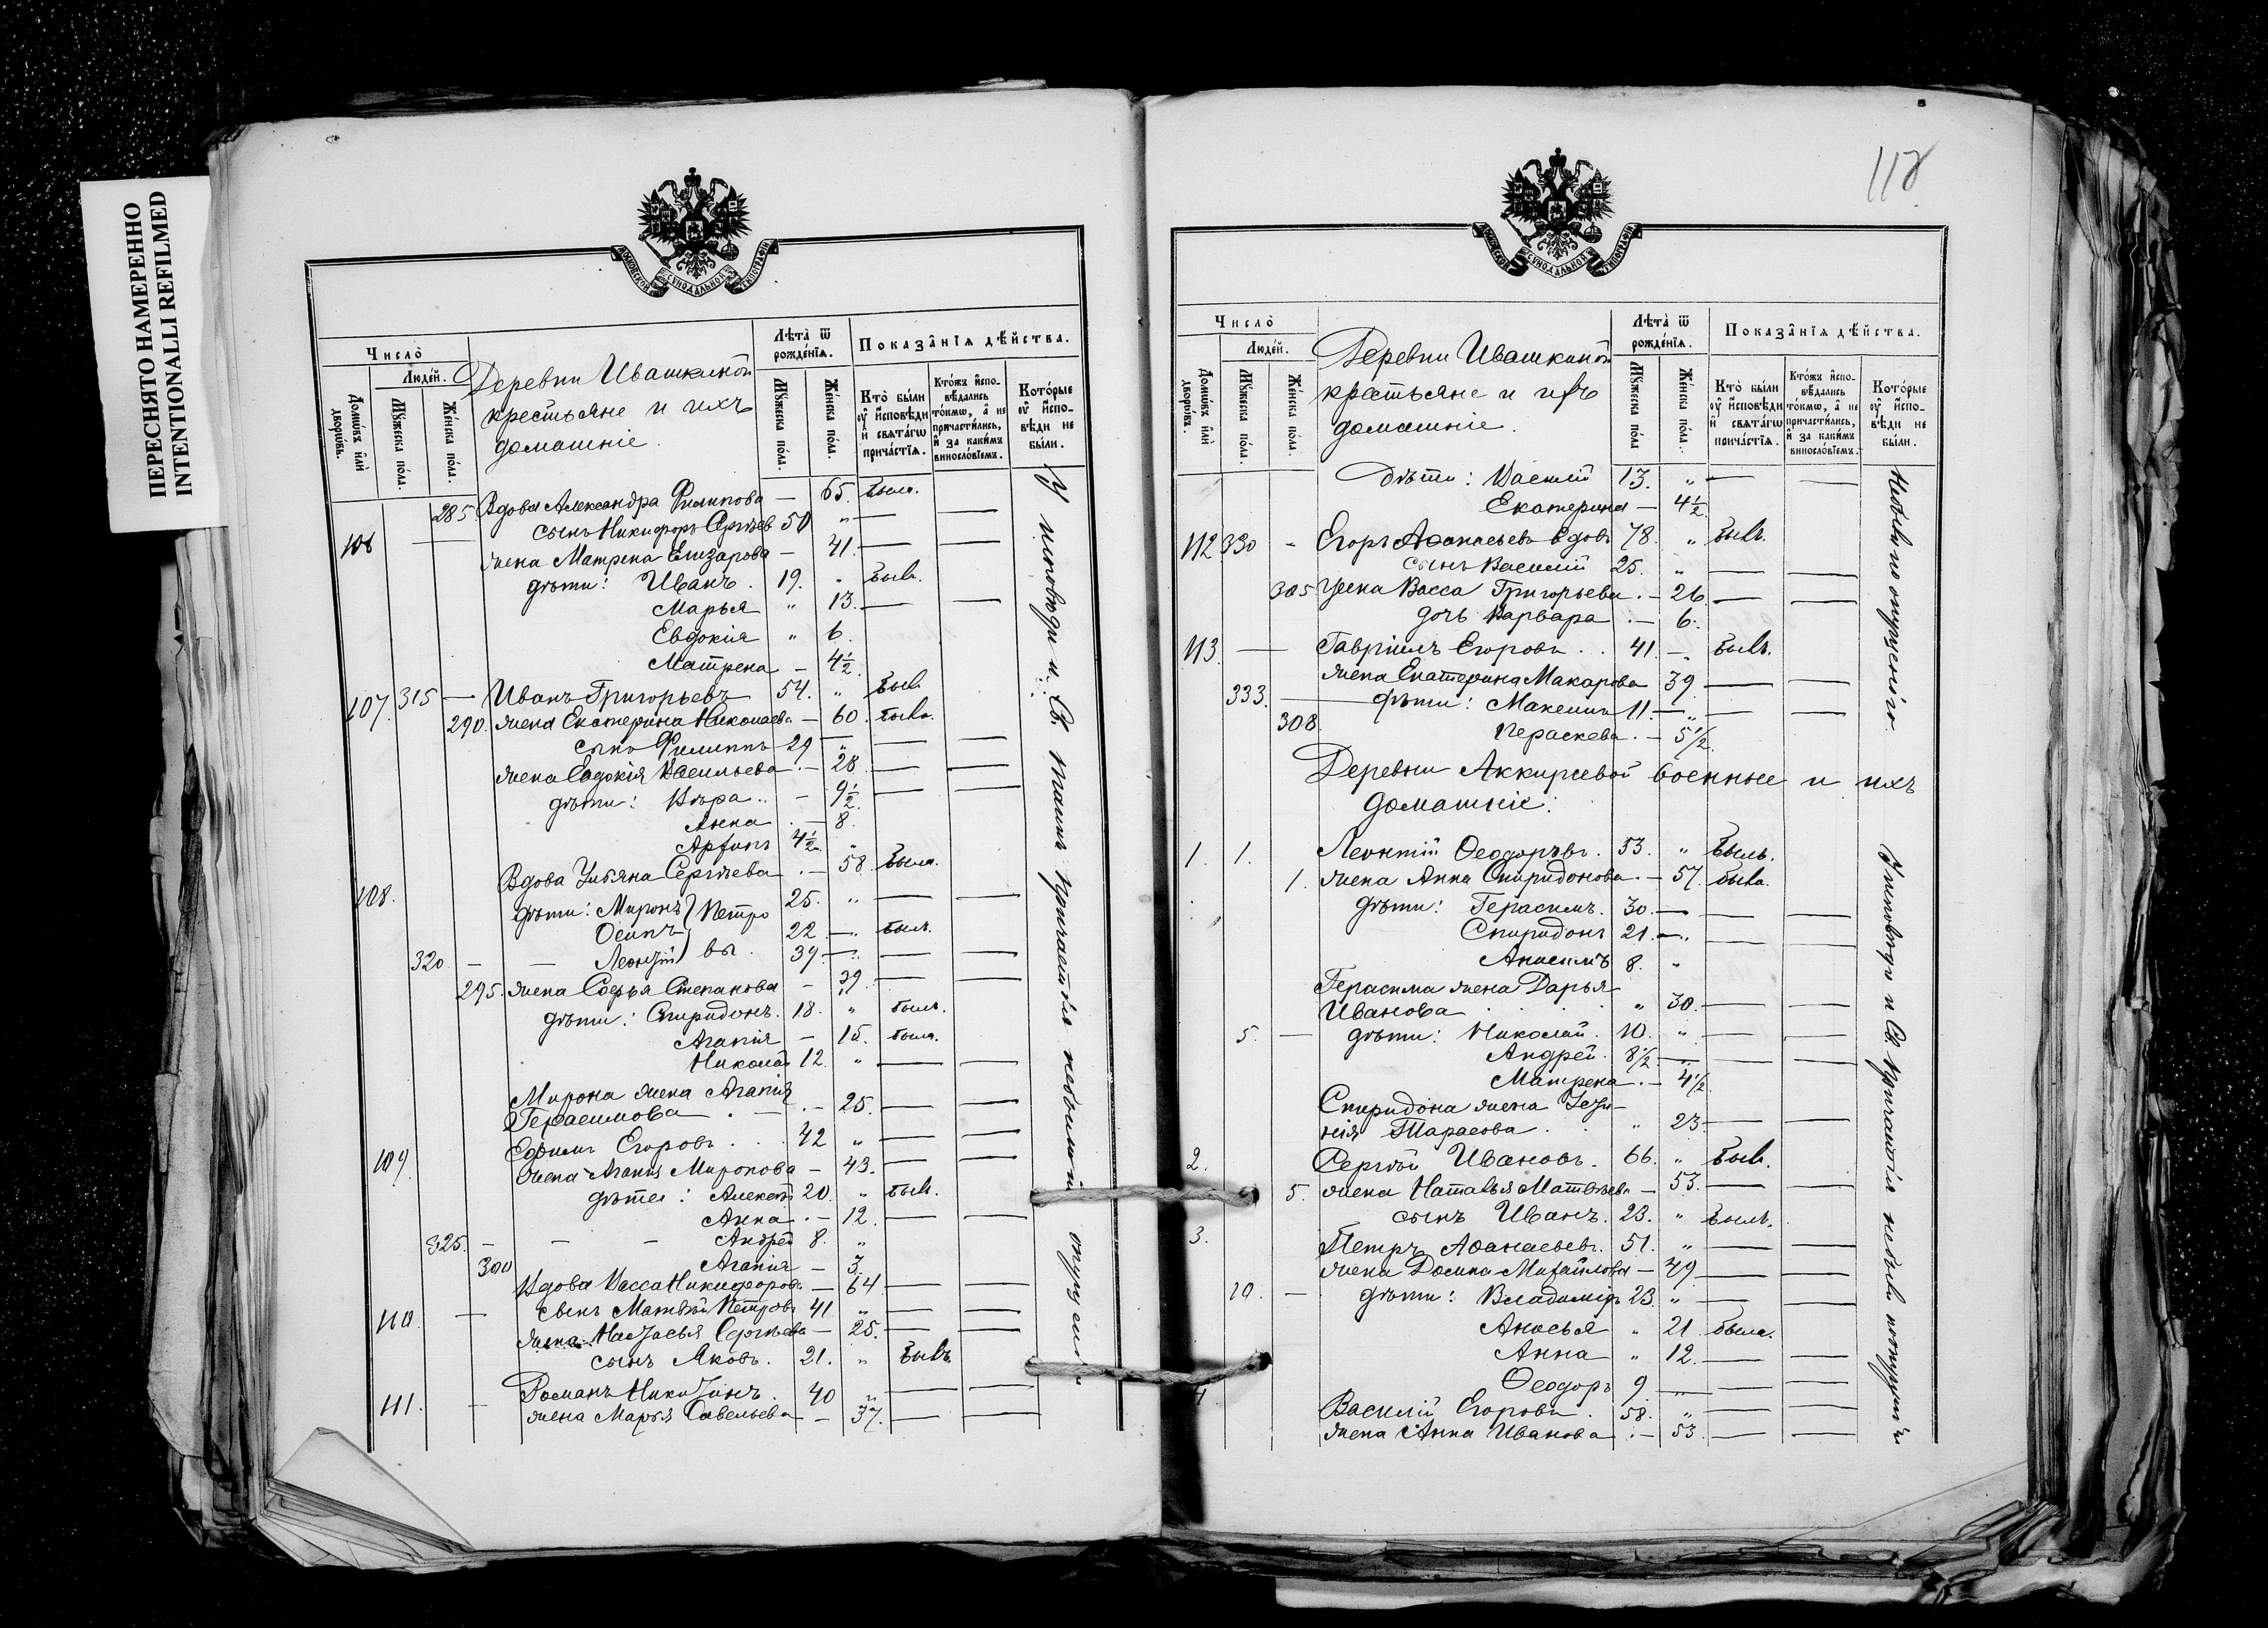 ПЕРЕСНЯТО НАМЕРЕННО
INTENTIONALLI REFILMED
МОСКОВСКОЙ СѴНОДАЛЬНОЙ ТИПОГРАФІИ
Число̀
Люде́й.
Домѡ́въ и҆лѝ дворѡ́въ.
Мꙋ́жеска по́ла.
Же́нска по́ла.
Деревни Ивашкиной
крестьяне и ихъ
домашніе.
Лѣта̀ ѿ рожде́нїѧ.
Мꙋ́жеска по́ла.
Же́нска по́ла.
Показа̂нїѧ дѣ́йства.
Кто̀ были ᲂу҆ и҆сповѣди и҆ свѧта́гѡ прича́стїѧ.
Кто́жъ и҆спо-вѣдались то́кмѡ, а҆ не причасти́лись, и҆ за каки́мъ винослові́емъ.
Кото́рые ᲂу҆ и҆спо-вѣди не были.
285. Вдова Александра Филипова — 65. была.
106 — сынъ Никифоръ Сергѣев 50 „ — —
жена Матрена Елизарова — 41. — —
дѣти: Иванъ. 19. „ былъ.
Марья „ 13. — —
Евдокія „ 6.
Матрена — 4½.
107. 315 — Иванъ Григорьевъ 54. „ былъ
290. жена Екатерина Николаева — 60. была.
сынъ Филиппъ 29 „ — —
жена Евдокія Васильева — 28 — —
дѣти: Вѣра.. — 9½. — —
Анна — 8.
4½ „
108. Вдова Ульяна Сергѣева — 58. была.
дѣти: Миронъ } Петро 25. „ — —
Осипъ 22 — былъ.
320. — — Леонтій } вы. 39 — „ — —
295. жена Софья Степанова — 39 — —
дѣти: Спиридонъ. 18. „ былъ.
Агапія — 15. была.
Николай 12. „ — —
Мирона жена Агапія
Герасимова — 25. — —
109. Ефимъ Егоровъ 42 „ — —
жена Агапія Миронова — 43. — —
дѣти: Алексѣй 20. „ былъ.
Анна — 12. — —
325. — — — Андрей 8. „
300 Агапія — 3.
Вдова Васса Никифорова — 64 — —
110. — сынъ Матвѣй Петровъ 41 „ — —
жена Настасья Сергѣева — 25. — —
сынъ Яковъ. 21. „ былъ.
111. — Романъ Никитинъ. 40 „ — —
жена Марья Савельева — 37. — —
У исповѣди и Св. Таинъ причастія небыли по опущенію
118
МОСКОВСКОЙ СѴНОДАЛЬНОЙ ТИПОГРАФІИ
Число̀
Люде́й.
Домѡ́въ и҆лѝ дворѡ́въ.
Мꙋ́жеска по́ла.
Же́нска по́ла.
Деревни Ивашкиной
крестьяне и ихъ
домашніе.
Лѣта̀ ѿ рожде́нїѧ.
Мꙋ́жеска по́ла
Же́нска по́ла.
Показа̂нїѧ дѣ́йства.
Кто̀ были ᲂу҆ и҆сповѣди и҆ свѧта́гѡ прича́стїѧ.
Кто́жъ и҆спо-вѣдались то́кмѡ, а҆ не причасти́лись, и҆ за каки́мъ винослові́емъ.
Кото́рые ᲂу҆ и҆спо-вѣди не были.
дѣти: Василій 13. „ — —
Екатерина — 4½.
112 330 - Егоръ Аѳанасьевъ вдовъ 78. „ былъ.
сынъ Василій 25. „ — —
305 жена Васса Григорьева. — 26. — —
дочь Варвара — 6.
113. — Гавріилъ Егоровъ 41. — былъ.
жена Екатерина Макарова 39 — —
333. — дѣти: Максимъ 11. — „ — —
308 Пераскева. — 5½.
Деревни Аккиреевой военные и ихъ
домашніе:
1. 1. Леонтій Ѳеодоровъ. 53. „ былъ.
1. жена Анна Спиридонова. — 57. была.
дѣти: Герасимъ. 30. — — —
Спиридонъ 21. — — —
Анисимъ 8. „
Герасима жена Дарья
Иванова „ 30. — —
5. — дѣти: Николай. 10. „ — —
Андрей. 8½ — — —
Матрена. — 4½.
Спиридона жена Усти-
нія Тарасова „ 23. — —
2. Сергѣй Ивановъ. 66. „ былъ.
5. жена Наталья Матвѣева — 53. — —
сынъ Иванъ. 23. „ былъ.
3. Петръ Аѳанасьевъ. 51. „ — —
жена Домна Михайлова — 49 — —
10. — дѣти: Владимиръ 23. „ — —
Анисья „ 21. была.
Анна „ 12. — —
Ѳеодоръ 9. — „ — —
4. Василій Егоровъ 58. „ — —
жена Анна Иванова — 53. — —
Небыли по опущенію.
У исповѣди и Св. Причастія небыли по опущенію